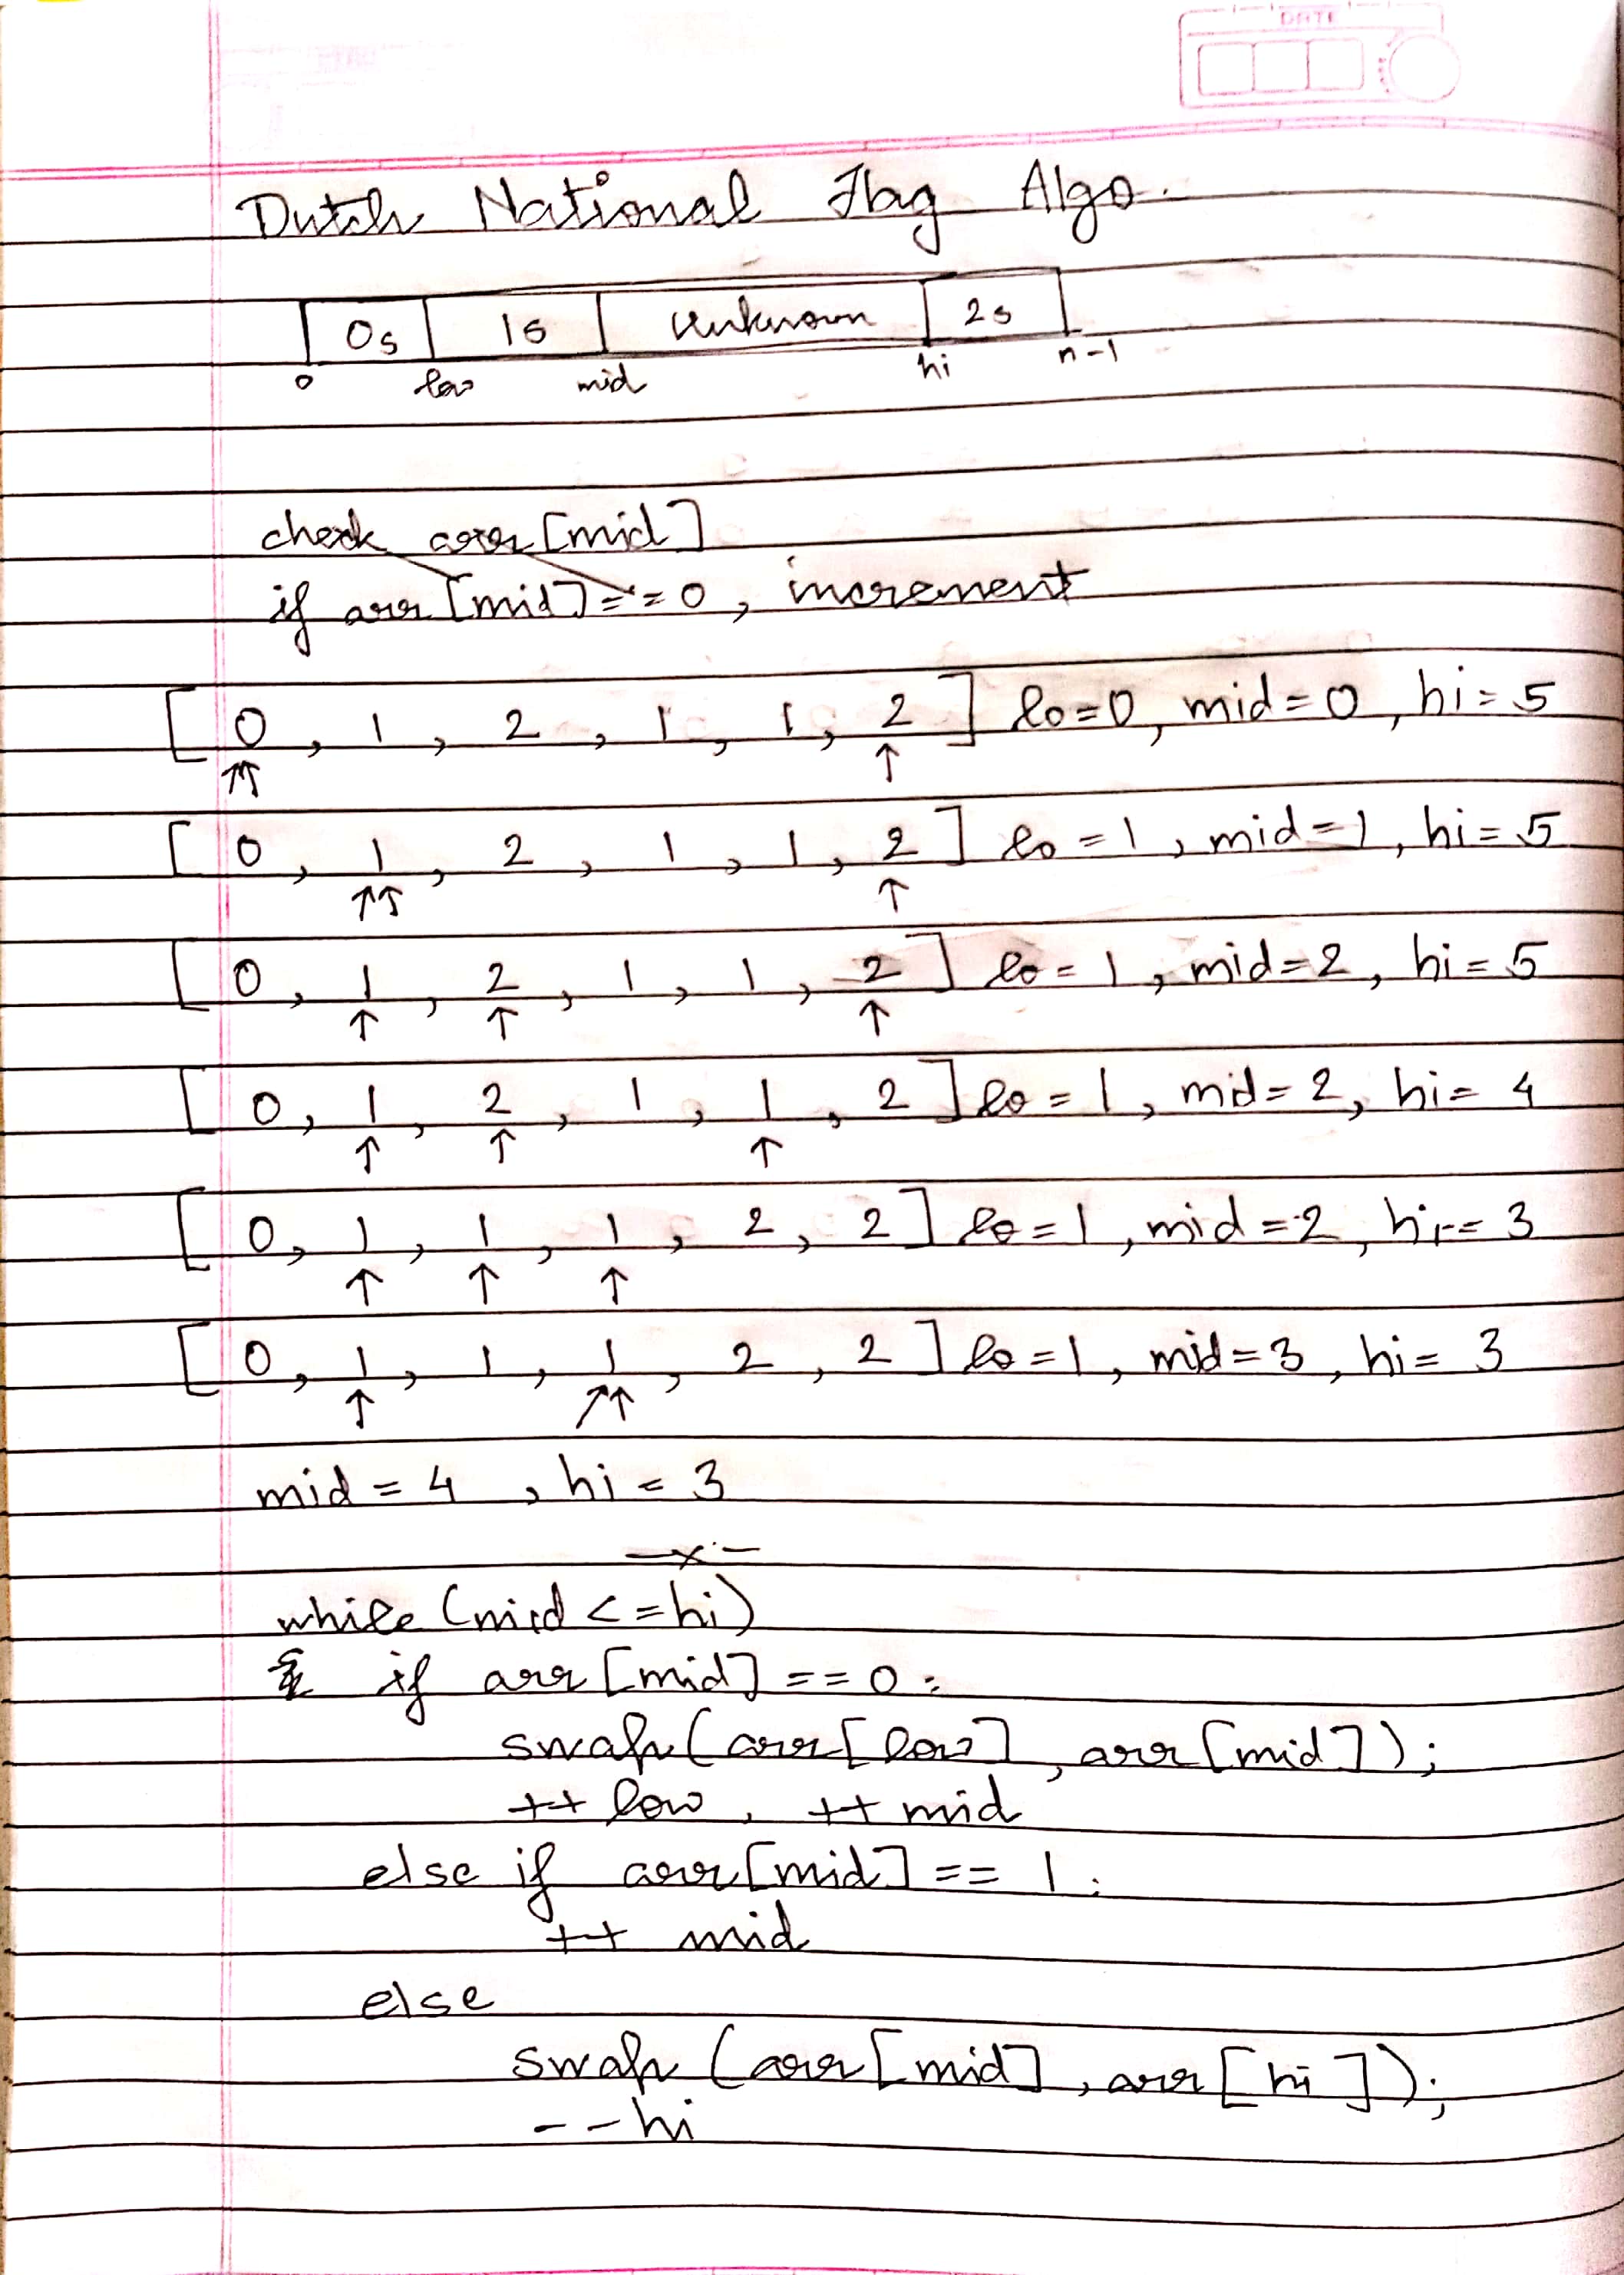 DATE
Dutch National Flag Algo.
0s 1s unknown 2s
0 low mid hi n-1
check arr[mid]
if arr[mid] == 0, increment
[0, 1, 2, 1, 1, 2] lo=0, mid=0, hi=5
[0, 1, 2, 1, 1, 2] lo=1, mid=1, hi=5
[0, 1, 2, 1, 1, 2] lo=1, mid=2, hi=5
[0, 1, 2, 1, 1, 2] lo=1, mid=2, hi=4
[0, 1, 1, 1, 2, 2] lo=1, mid=2, hi=3
[0, 1, 1, 1, 2, 2] lo=1, mid=3, hi=3
mid=4, hi=3
—x—
while (mid <= hi)
if arr[mid] == 0:
swap(arr[low], arr[mid]);
++low, ++mid
else if arr[mid] == 1:
++mid
else
swap(arr[mid], arr[hi]);
--hi